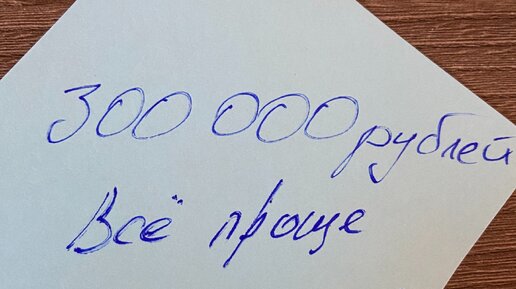 300 000 рублей
Всё проще